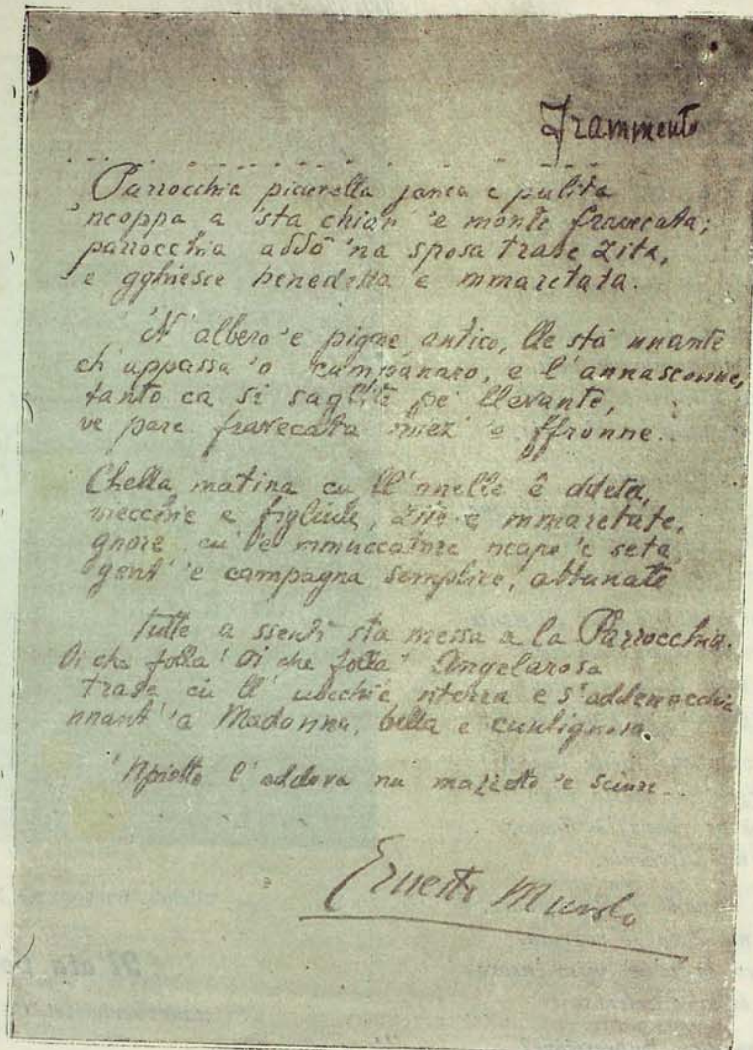 Frammento
Parrocchia piccerella janca e pulita
'ncoppa a 'sta chian' 'e monte fravecata;
parrocchia addò 'na sposa trase zita,
e gghiesce benedetta e mmaretata.
N' albero 'e pigne antico, lle stà nnante
ch' appassa 'o campanaro, e l'annasconne,
tanto ca si saglite pe' llevante,
ve pare fravecata mmiez' 'e ffronne..
Chella matina cu ll' anielle ê ddeta,
vecchie e figliule, zite e mmaretate,
gnore cu 'e mmuccature ncapo 'e seta,
gent' 'e campagna semplice, attunate
tutte a ssentì sta messa a la Parrocchia.
Oi che folla! Oi che folla! Angelarosa
trase cu ll' uocchie nterra e s'addenocchia
nnant' 'a Madonna, bella e cuntignosa.
'Mpietto l' addora nu mazzetto 'e sciure...
Ernesto Murolo